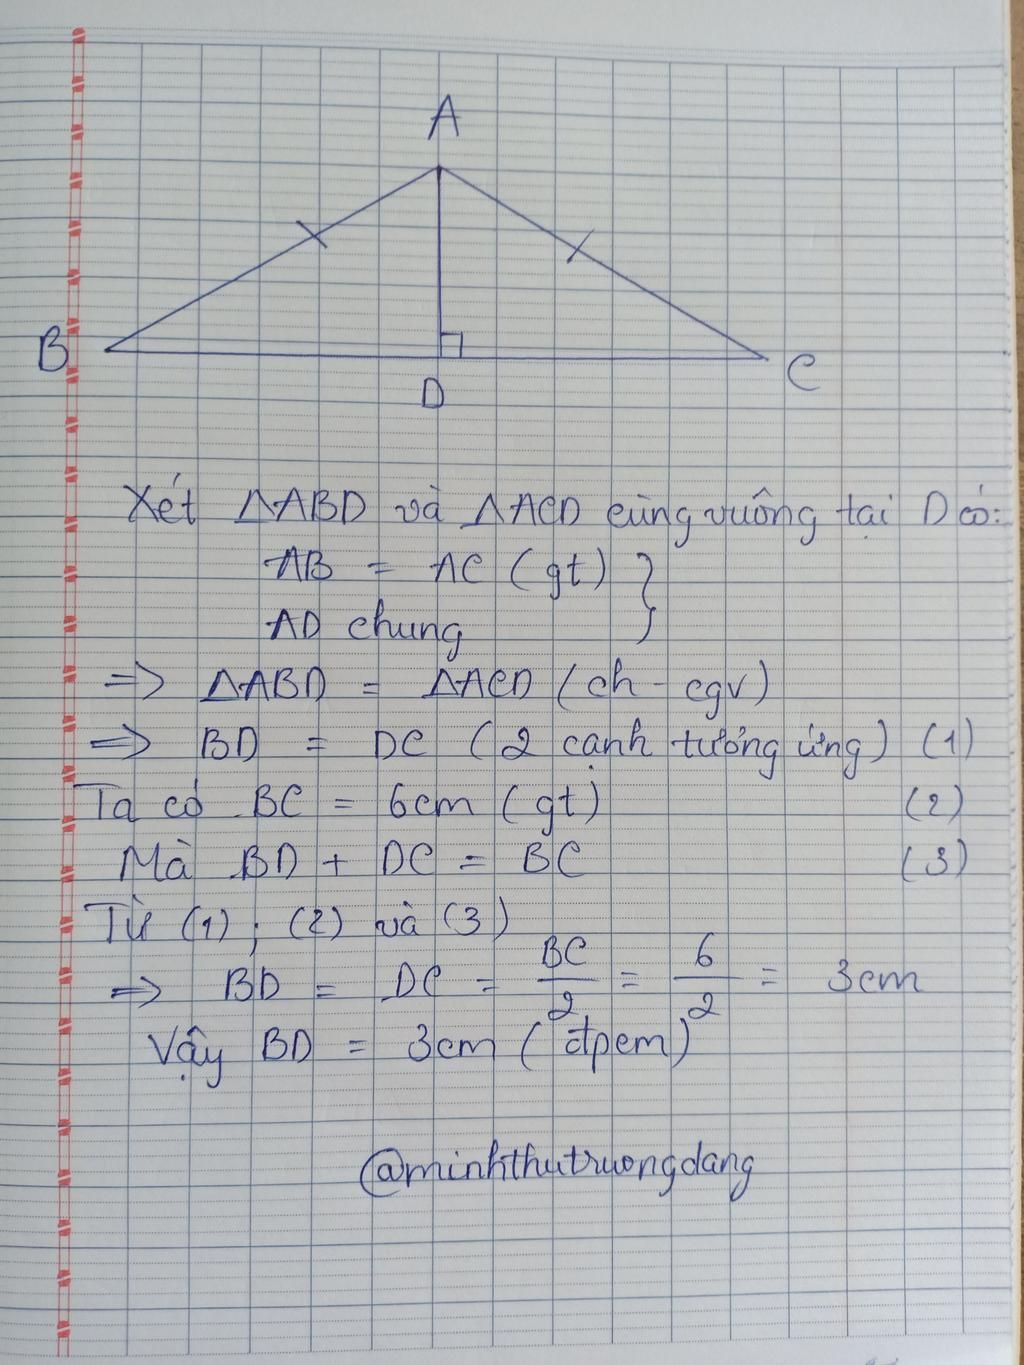 A
B
D
C
Xét ΔABD và ΔACD cùng vuông tại D có:
AB = AC (gt) }
AD chung
=> ΔABD = ΔACD (ch - cgv)
=> BD = DC (2 cạnh tương ứng) (1)
Ta có BC = 6cm (gt) (2)
Mà BD + DC = BC (3)
Từ (1); (2) và (3)
=> BD = DC = BC/2 = 6/2 = 3cm
Vậy BD = 3cm (đpcm)
@minhthutruongdang